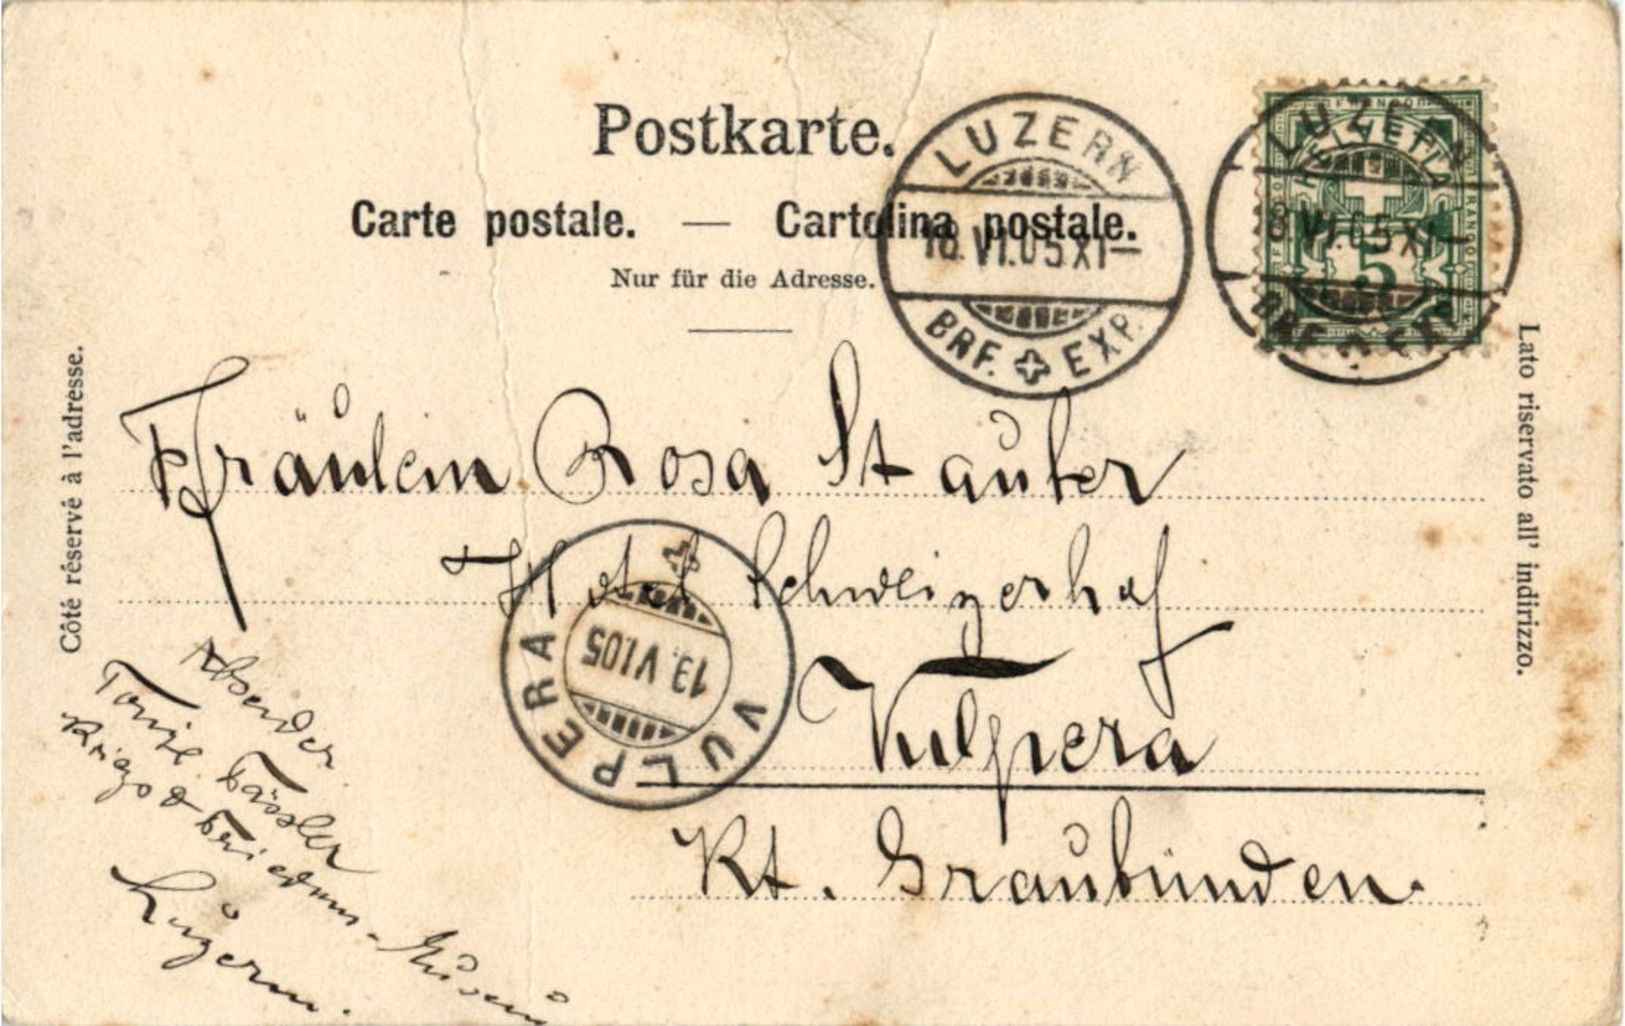 Postkarte.
Carte postale. — Cartolina postale.
Nur für die Adresse.
LUZERN
18.VI.05 XI—
BRF. EXP.
LUZERN
18.VI.05 XI—
BRF. EXP.
HELVETIA
5
Côté réservé à l'adresse.
Lato riservato all' indirizzo.
Fräulein Rosa Stauber
Hotel Schweizerhof
Vulpera
Kt. Graubünden.
VULPERA
19.VI.05
Absender
Fässler
Kriegs & Friedens-Museum
Luzern.